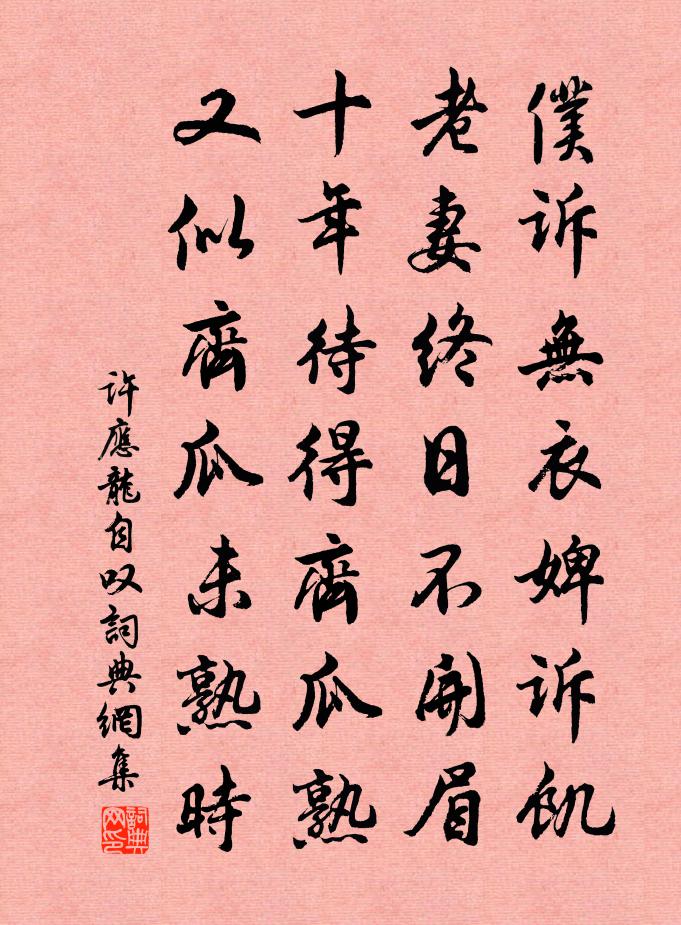 僕訴無衣婢訴飢
老妻終日不開眉
十年待得齊瓜熟
又似齊瓜未熟時
許應龍自叹詞典網集
詞典网印